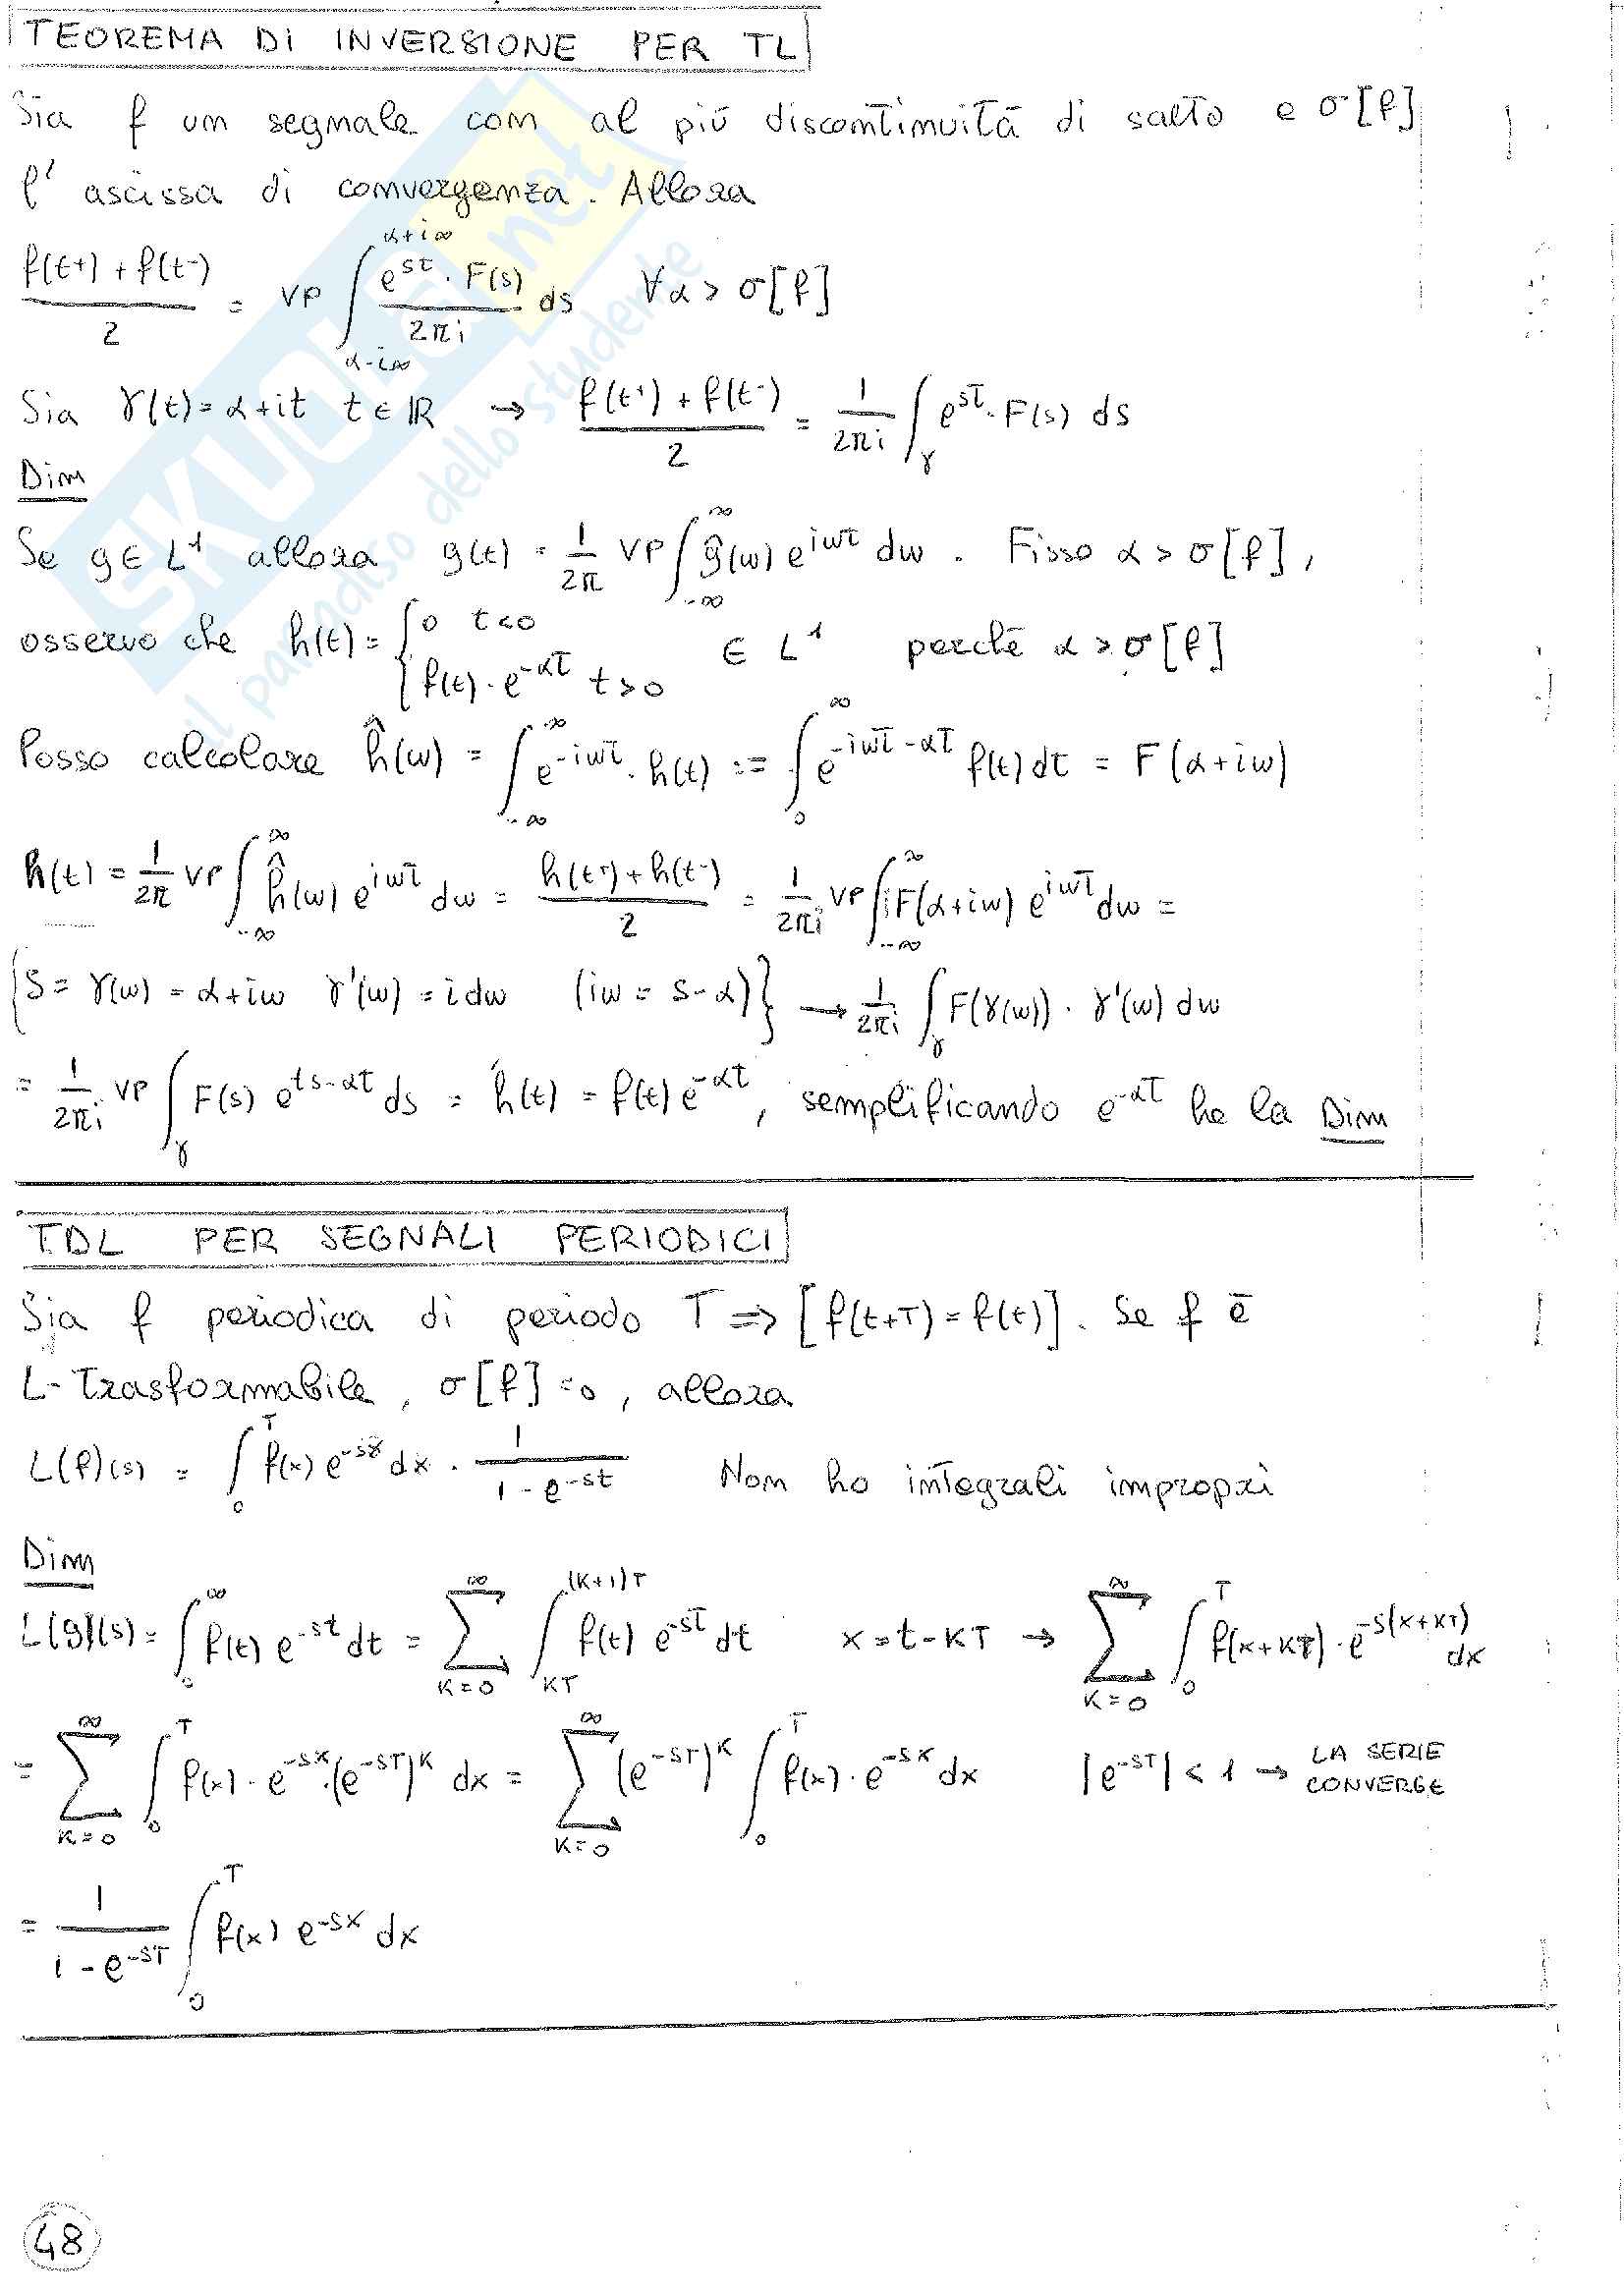 TEOREMA DI INVERSIONE PER TL
Sia f un segnale con al più discontinuità di salto e σ[f]
l'ascissa di convergenza. Allora
(f(t⁺) + f(t⁻))/2 = VP ∫_{α-i∞}^{α+i∞} (e^{st} · F(s))/(2πi) ds ∀α > σ[f]
Sia γ(t) = α+it t ∈ ℝ → (f(t⁺) + f(t⁻))/2 = 1/(2πi) ∫_γ e^{st} · F(s) ds
Dim
Se g ∈ L¹ allora g(t) = 1/(2π) VP ∫_{-∞}^{∞} ĝ(ω) e^{iωt} dω . Fisso α > σ[f] ,
osservo che h(t) = { 0 t<0 ; f(t) · e^{-αt} t>0 ∈ L¹ perché α > σ[f]
Posso calcolare ĥ(ω) = ∫_{-∞}^{∞} e^{-iωt} · h(t) := ∫_0^∞ e^{-iωt-αt} f(t) dt = F(α+iω)
h(t) = 1/(2π) VP ∫_{-∞}^{∞} ĥ(ω) e^{iωt} dω = (h(t⁺) + h(t⁻))/2 = 1/(2πi) VP ∫_{-∞}^{∞} iF(α+iω) e^{iωt} dω =
{S = γ(ω) = α+iω γ'(ω) = i dω (iω = s-α)} → 1/(2πi) ∫_γ F(γ(ω)) · γ'(ω) dω
= 1/(2πi) VP ∫_γ F(s) e^{ts-αt} ds = h(t) = f(t) e^{-αt}, semplificando e^{-αt} ho la Dim
TDL PER SEGNALI PERIODICI
Sia f periodica di periodo T ⇒ [f(t+T) = f(t)]. Se f è
L-Trasformabile, σ[f] = 0, allora
L(f)(s) = ∫_0^T f(x) e^{-sx} dx · 1/(1-e^{-st}) Non ho integrali impropri
Dim
L(g)(s) = ∫_0^∞ f(t) e^{-st} dt = ∑_{K=0}^{∞} ∫_{KT}^{(K+1)T} f(t) e^{-st} dt x = t-KT → ∑_{K=0}^{∞} ∫_0^T f(x+KT) · e^{-s(x+KT)} dx
= ∑_{K=0}^{∞} ∫_0^T f(x) · e^{-sx} · (e^{-sT})^K dx = ∑_{K=0}^{∞} (e^{-sT})^K ∫_0^T f(x) · e^{-sx} dx |e^{-sT}| < 1 → LA SERIE CONVERGE
= 1/(1-e^{-sT}) ∫_0^T f(x) e^{-sx} dx
48
SKUOLA.net
il paradiso dello studente